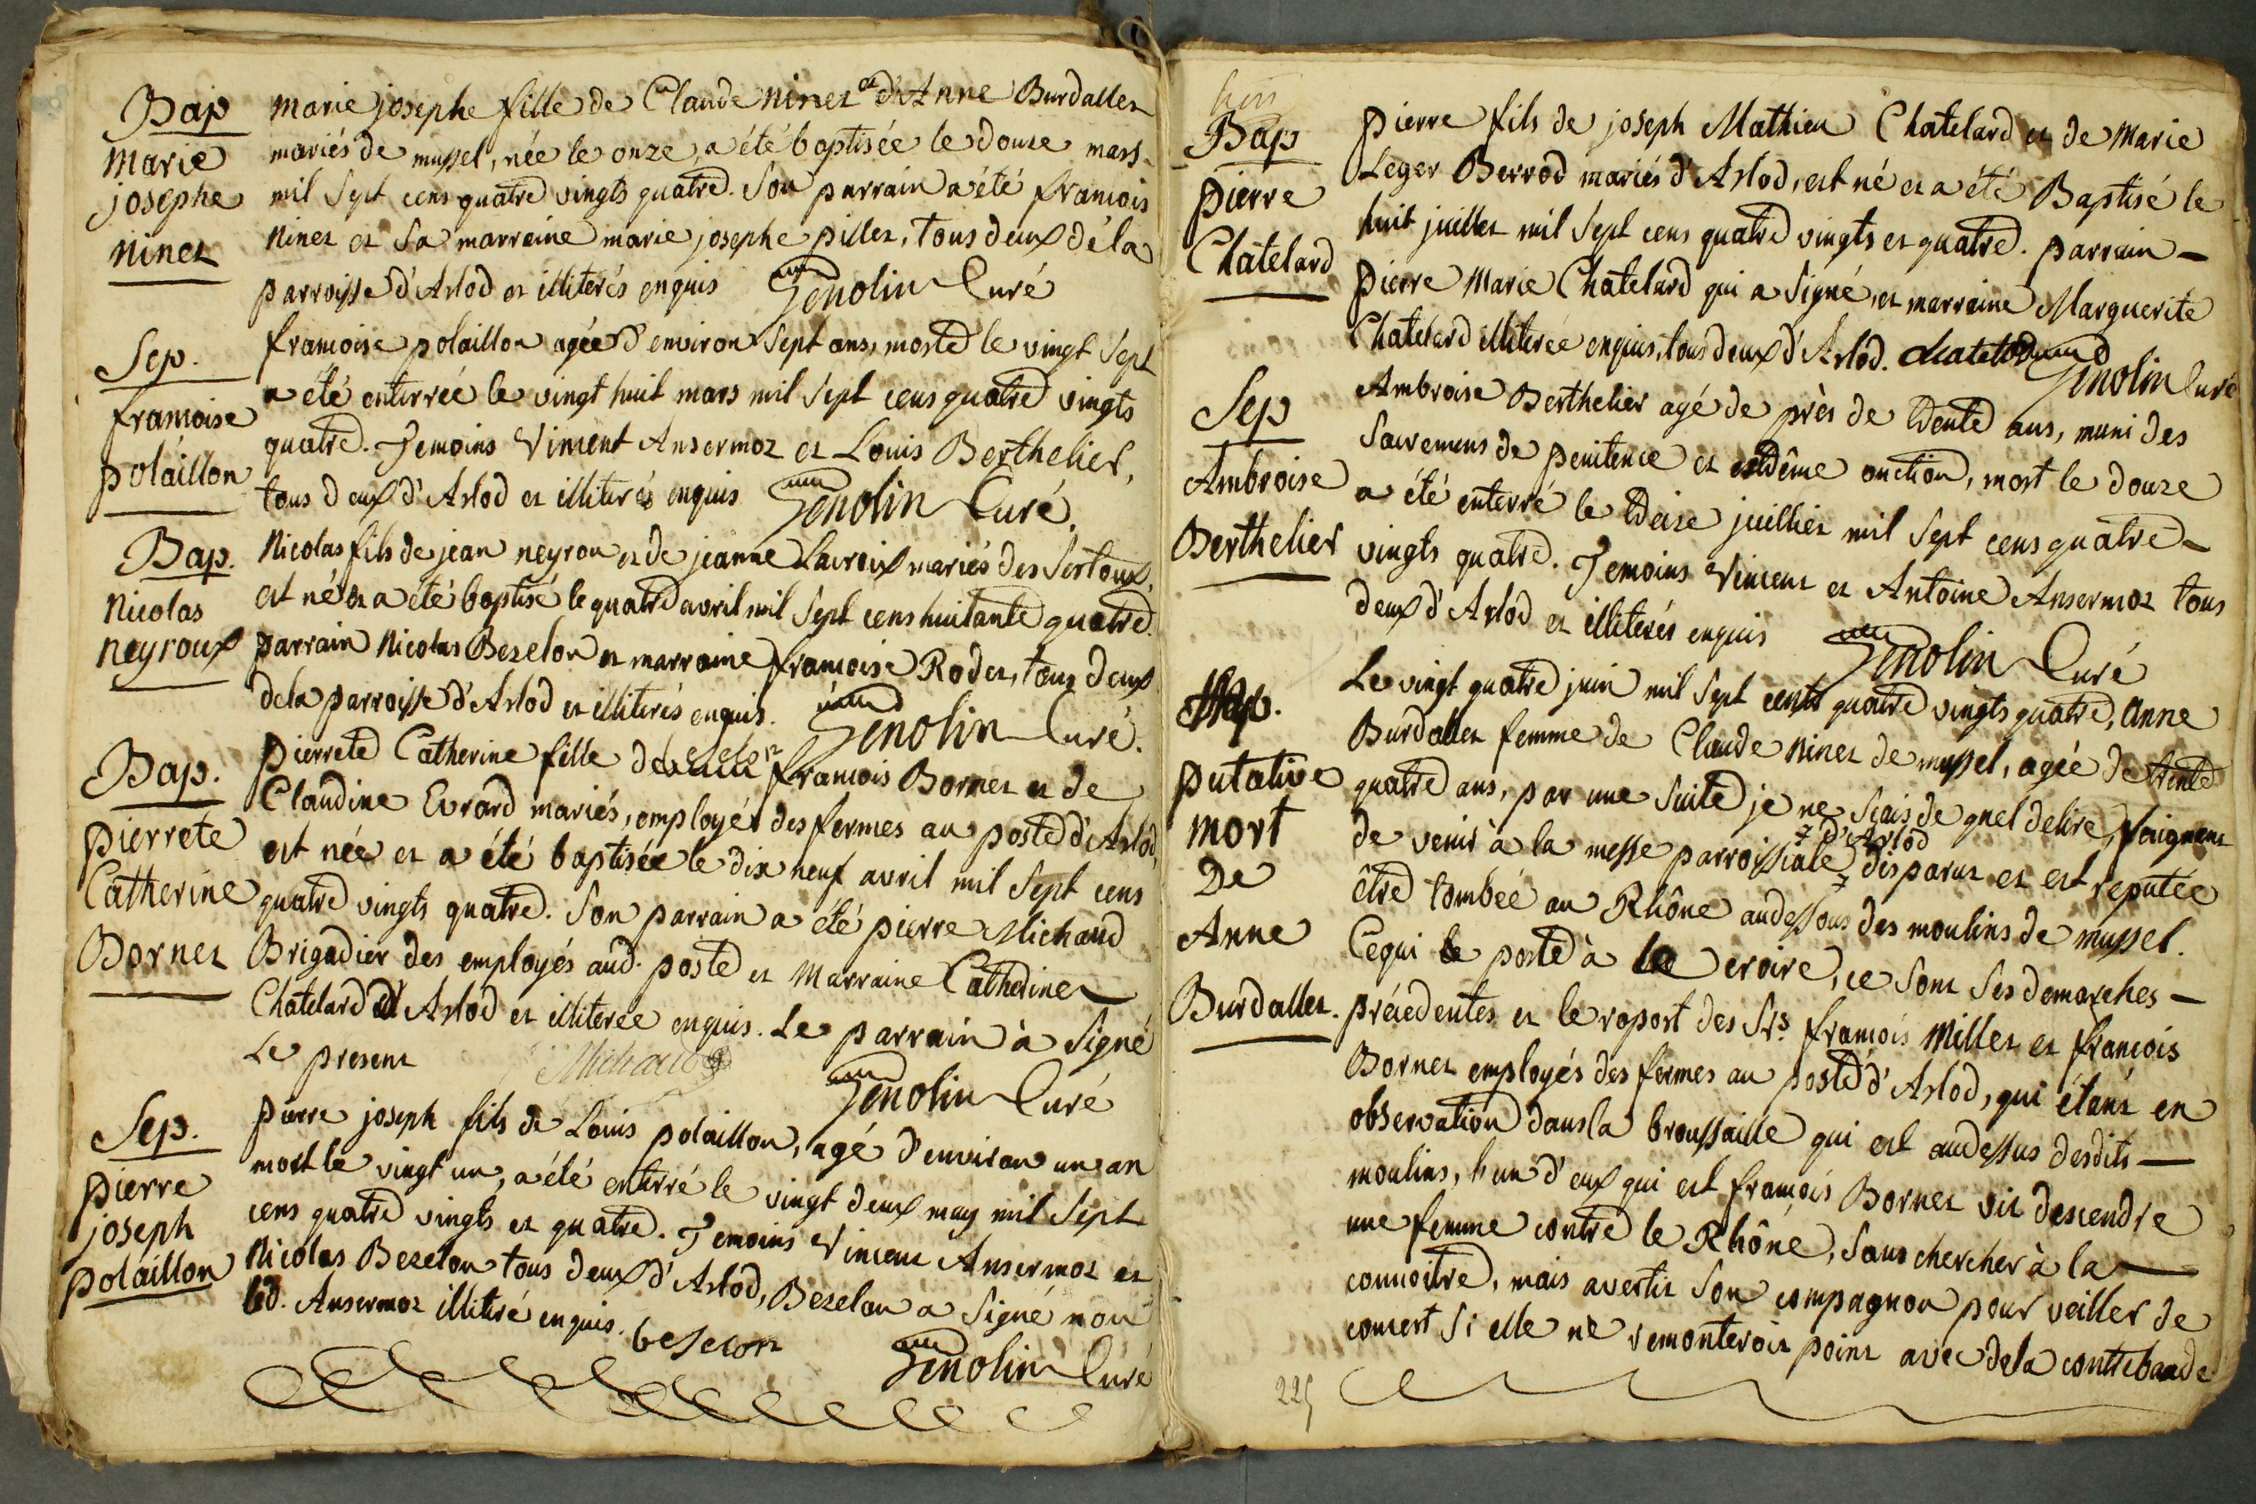 Bap
Marie
josephe
Ninet
Marie josephe fille de Claude Ninet et d'Anne Burdallet
mariés de mussel, née le onze, a été baptisée le douze mars
mil sept cens quatre vingts quatre. Son parrain a été francois
Ninet et sa marreine marie josephe pillet, tous deux de la
parroisse d'Arlod et illiterés enquis Genolin Curé
Sep.
francoise
polaillon
francoise polaillon agée d'environ sept ans, morte le vingt sept
a été enterrée le vingt huit mars mil sept cens quatre vingts
quatre. Temoins Vincent Ansermoz et Louis Berthelier,
tous deux d'Arlod et illiterés enquis Genolin Curé.
Bap.
Nicolas
neyroux
Nicolas fils de jean neyrou et de jeanne Lacroix mariés des Sertoux,
est né et a été baptisé le quatre avril mil sept cens huitante quatre.
parrain Nicolas Bezelon et marraine francoise Rodet, tous deux
de la parroisse d'Arlod et illiterés enquis. Genolin Curé.
beselon
Bap.
pierrete
Catherine
Bornet
pierrete Catherine fille de francois Bornet et de
Claudine Evrard mariés, employés des fermes au poste d'Arlod,
est née et a été baptisée le dix neuf avril mil sept cens
quatre vingts quatre. Son parrain a été pierre Michaud
Brigadier des employés aud. poste et Marraine Catherine
Chatelard d'Arlod et illiterée enquis. Le parrain à signé
Le present Michaud
Genolin Curé
Sep.
pierre
joseph
polaillon
pierre joseph fils de Louis polaillon, agé d'environ un an
mort le vingt un, a été enterré le vingt deux may mil sept
cens quatre vingts et quatre. Temoins Vincent Ansermoz et
Nicolas Bezelon tous deux d'Arlod, Bezelon a signé non
led. Ansermoz illiteré enquis. beselon
Genolin Curé
Bap
pierre
Chatelard
pierre fils de joseph Mathieu Chatelard et de Marie
Leger Berrod mariés d'Arlod, est né et a été Baptisé le
huit juillet mil sept cens quatre vingts et quatre. parrain
pierre Marie Chatelard qui a signé, et marraine Marguerite
Chatelard illiterée enquis, tous deux d'Arlod. chatelard
Genolin Curé
Sep
Ambroise
Berthelier
Ambroise Berthelier agé de près de trente ans, muni des
Sacremens de penitence et extrême onction, mort le douze
a été enterré le treize juillet mil sept cens quatre
vingts quatre. Temoins Vincent et Antoine Ansermoz tous
deux d'Arlod et illiterés enquis Genolin Curé
putative
mort
De
Anne
Burdallet.
Le vingt quatre juin mil sept cents quatre vingts quatre, Anne
Burdallet femme de Claude Ninet de mussel, agée de trente
quatre ans, par une suite je ne sçais de quel delire, faignent
de venir à la messe parroissiale d'Arlod disparut et est reputée
être tombée au Rhône audessous des moulins de mussel.
Ce qui le porte à le croire, ce sont ses demarches
précedentes et le raport des Srs. francois Millet et francois
Bornet employés des fermes au poste d'Arlod, qui étant en
observation dans la broussaille qui est audessus desdits
moulins, l'un d'eux qui est francois Bornet vit descendre
une femme contre le Rhône, sans chercher à la
connoitre, mais avertit son compagnon pour veiller de
concert si elle ne remonteroit point avec de la contrebande
225